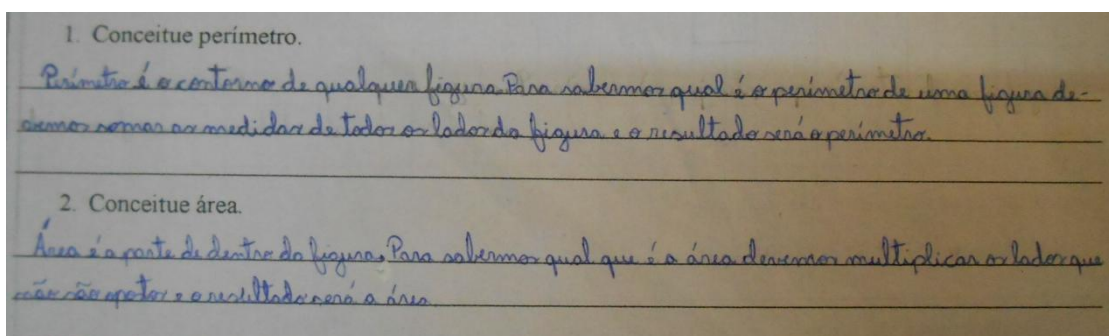 1. Conceitue perímetro.
Perímetro é o contorno de qualquer figura. Para sabermos qual é o perímetro de uma figura de-
vemos somar as medidas de todos os lados da figura e o resultado será o perímetro.
2. Conceitue área.
Área é a parte de dentro da figura. Para sabermos qual que é a área devemos multiplicar os lados que
não são opotos e o resultado será a área.